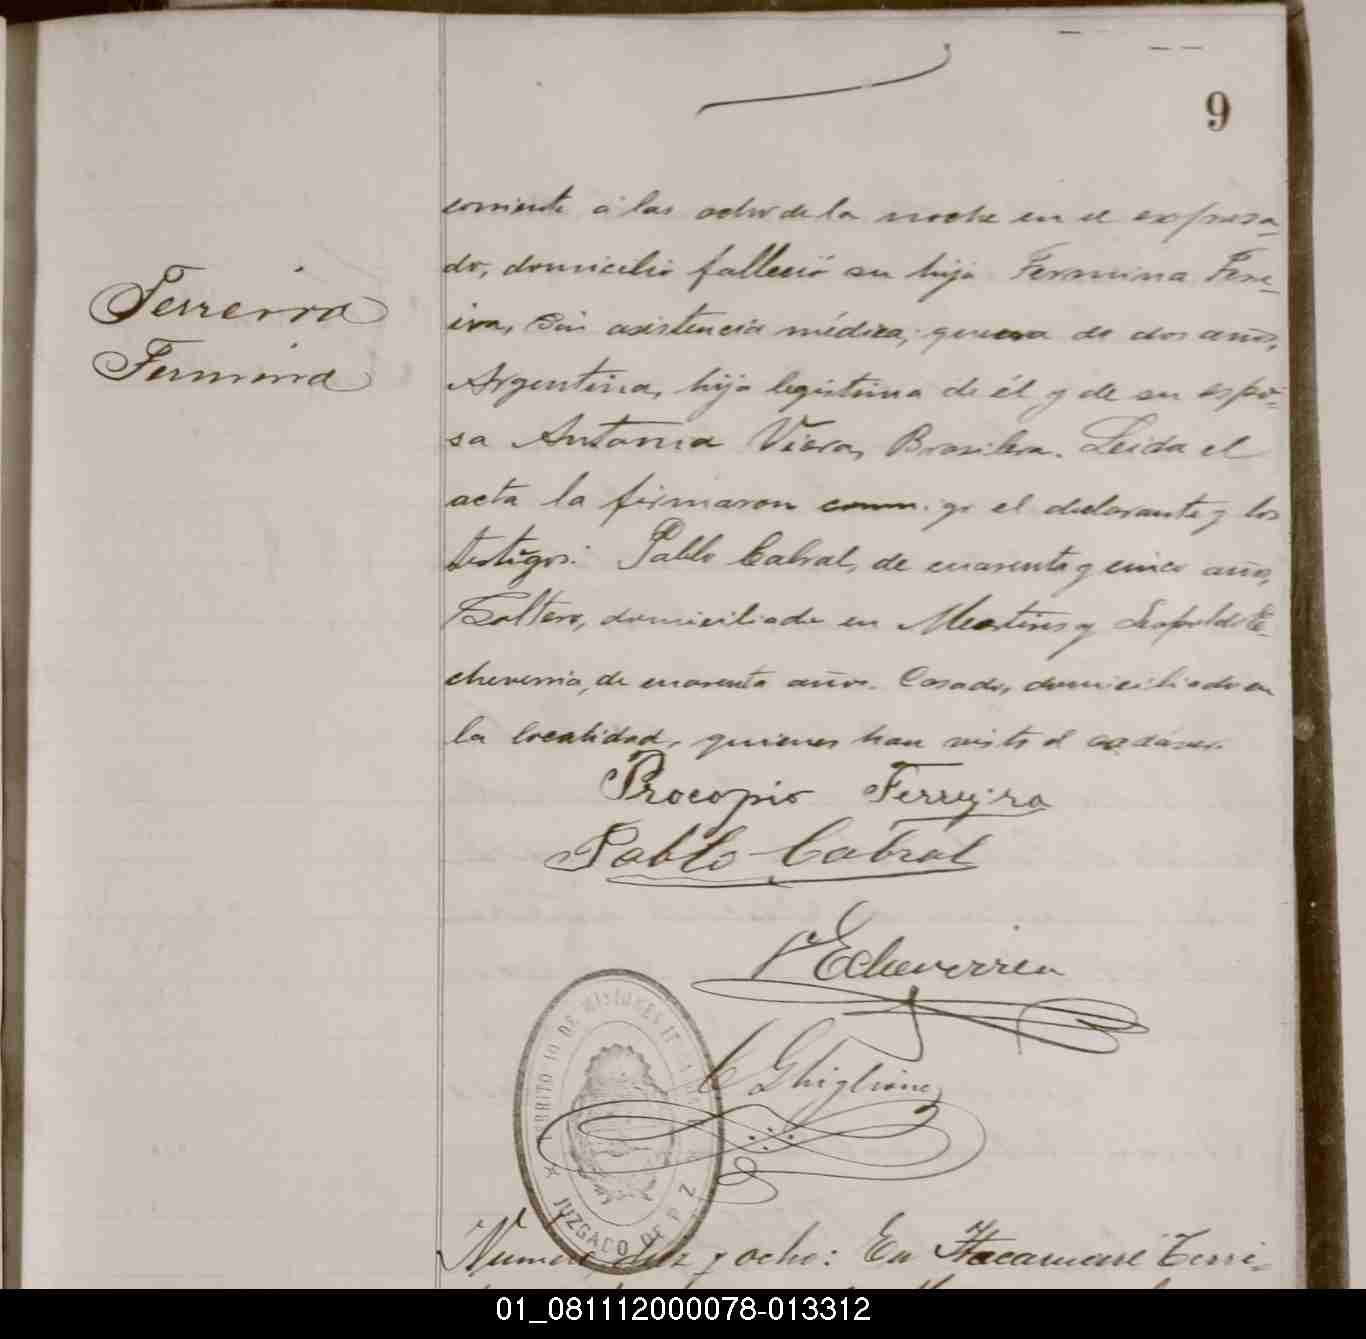 9
corriente á las ocho de la noche en el expresa-
do, domicilio falleció su hija Fermina Ferre-
ira, Sin asistencia médica; que era de dos años,
Argentina, hija legítima de él y de su espo-
sa Antonia Viera, Brasilera. Leida el
acta la firmaron conm.igo el declarante y los
testigos: Pablo Cabral, de cuarenta y cinco años,
Soltero, domiciliado en Martires y Leopoldo E-
cheverria, de cuarenta años. Casado, domiciliado en
la localidad, quienes han visto el cadáver.
Ferreira
Fermina
Procopio Ferreyra
Pablo Cabral
Echeverria
Ghiglione
TERRITORIO DE MISIONES
JUZGADO DE PAZ
Numero diez y ocho: En Itacaruaré Terri-
01_081112000078-013312